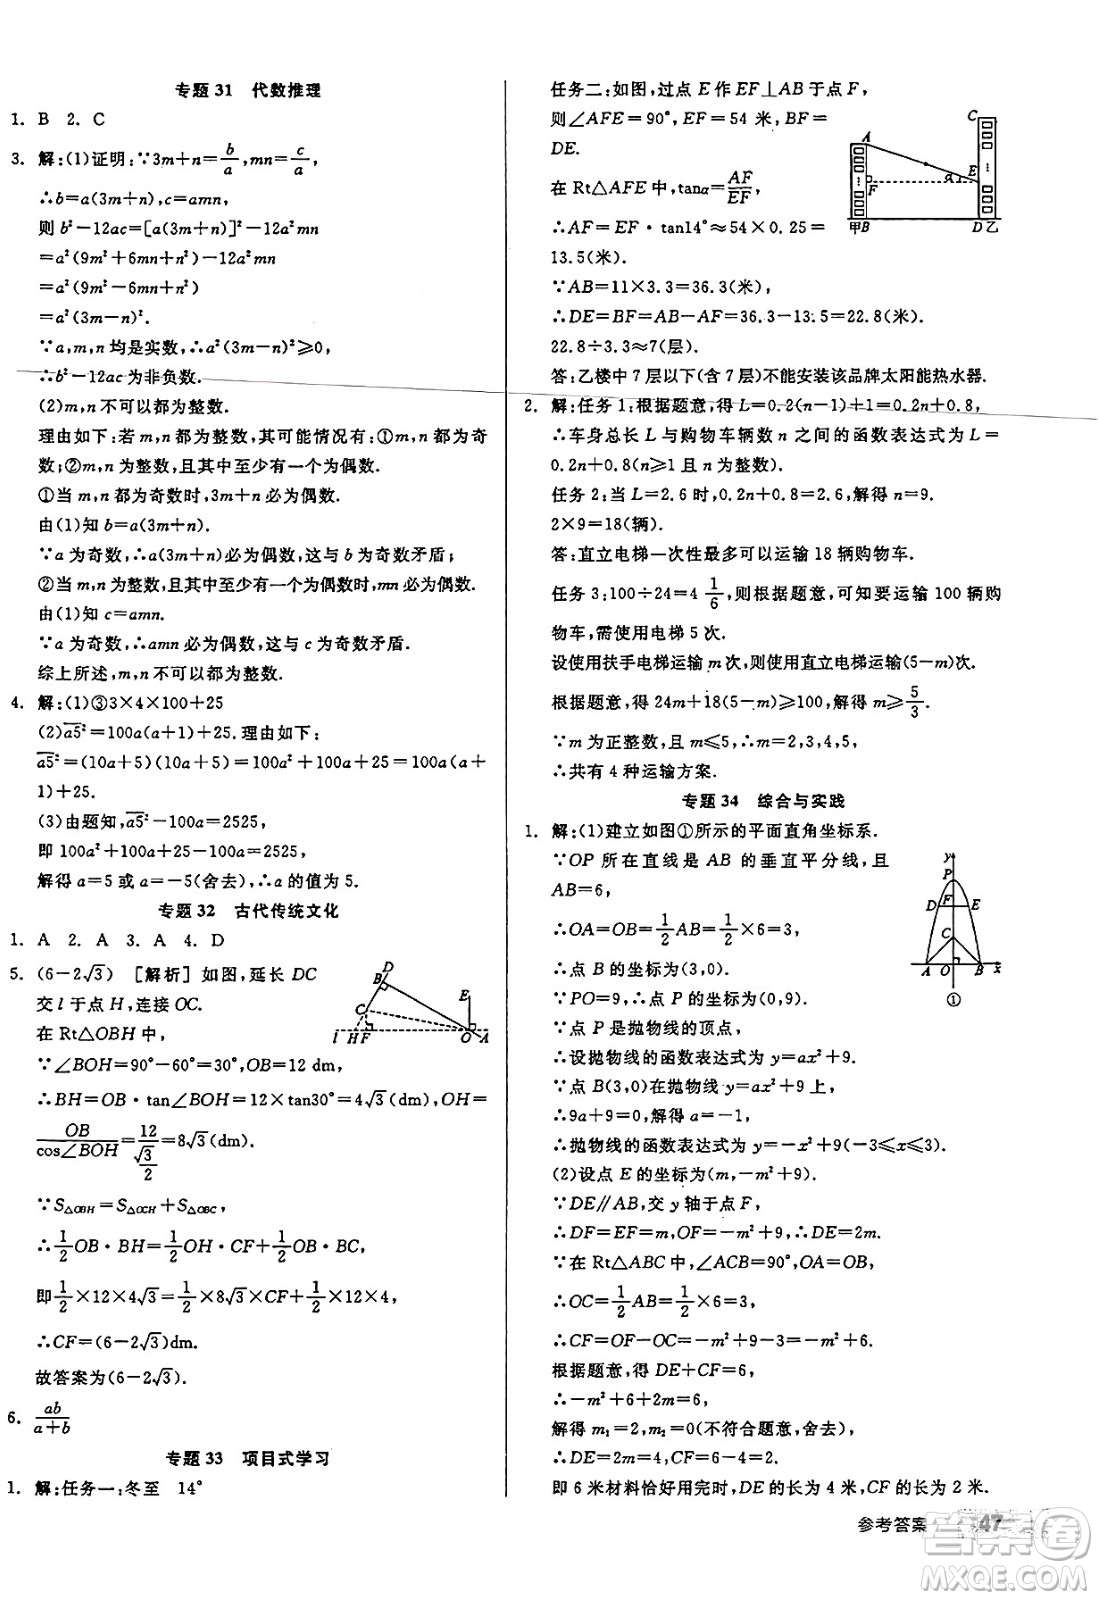 专题 31 代数推理
1. B 2. C
3. 解:(1)证明:∵3m+n=b/a,mn=c/a,
∴b=a(3m+n),c=amn,
则 b²-12ac=[a(3m+n)]²-12a²mn
=a²(9m²+6mn+n²)-12a²mn
=a²(9m²-6mn+n²)
=a²(3m-n)².
∵a,m,n 均是实数,∴a²(3m-n)²≥0,
∴b²-12ac 为非负数.
(2)m,n 不可以都为整数.
理由如下:若 m,n 都为整数,其可能情况有:①m,n 都为奇
数;②m,n 为整数,且其中至少有一个为偶数.
①当 m,n 都为奇数时,3m+n 必为偶数.
由(1)知 b=a(3m+n).
∵a 为奇数,∴a(3m+n)必为偶数,这与 b 为奇数矛盾;
②当 m,n 为整数,且其中至少有一个为偶数时,mn 必为偶数.
由(1)知 c=amn.
∵a 为奇数,∴amn 必为偶数,这与 c 为奇数矛盾.
综上所述,m,n 不可以都为整数.
4. 解:(1)③3×4×100+25
(2)a5²=100a(a+1)+25.理由如下:
a5²=(10a+5)(10a+5)=100a²+100a+25=100a(a+
1)+25.
(3)由题知,a5²-100a=2525,
即 100a²+100a+25-100a=2525,
解得 a=5 或 a=-5(舍去),∴a 的值为 5.
专题 32 古代传统文化
1. A 2. A 3. A 4. D
5. (6-2√3) [解析] 如图,延长 DC
交 l 于点 H,连接 OC.
在 Rt△OBH 中,
∵∠BOH=90°-60°=30°,OB=12 dm,
∴BH=OB·tan∠BOH=12×tan30°=4√3(dm),OH=
OB/cos∠BOH=12/(√3/2)=8√3(dm).
∵S△OBH=S△OCH+S△OBC,
∴1/2OB·BH=1/2OH·CF+1/2OB·BC,
即1/2×12×4√3=1/2×8√3×CF+1/2×12×4,
∴CF=(6-2√3)dm.
故答案为(6-2√3).
6. ab/(a+b)
专题 33 项目式学习
1. 解:任务一:冬至 14°
D
B
C
E
l H F O A
任务二:如图,过点 E 作 EF⊥AB 于点 F,
则∠AFE=90°,EF=54 米,BF=
DE.
在 Rt△AFE 中,tanα=AF/EF,
∴AF=EF·tan14°≈54×0.25=
13.5(米).
∵AB=11×3.3=36.3(米),
∴DE=BF=AB-AF=36.3-13.5=22.8(米).
22.8÷3.3≈7(层).
答:乙楼中 7 层以下(含 7 层)不能安装该品牌太阳能热水器.
C
A
E
α
F
甲B D乙
2. 解:任务 1:根据题意,得 L=0.2(n-1)+1=0.2n+0.8,
∴车身总长 L 与购物车辆数 n 之间的函数表达式为 L=
0.2n+0.8(n≥1 且 n 为整数).
任务 2:当 L=2.6 时,0.2n+0.8=2.6,解得 n=9.
2×9=18(辆).
答:直立电梯一次性最多可以运输 18 辆购物车.
任务 3:100÷24=4 1/6,根据题意,可变运输 100 辆购
物车,需使用电梯 5 次.
设使用扶手电梯运输 m 次,则使用直立电梯运输(5-m)次.
根据题意,得 24m+18(5-m)≥100,解得 m≥5/3.
∵m 为正整数,且 m≤5,∴m=2,3,4,5,
∴共有 4 种运输方案.
专题 34 综合与实践
1. 解:(1)建立如图①所示的平面直角坐标系.
∵OP 所在直线是 AB 的垂直平分线,且
AB=6,
∴OA=OB=1/2AB=1/2×6=3,
∴点 B 的坐标为(3,0).
∵PO=9,∴点 P 的坐标为(0,9),
∵点 P 是抛物线的顶点,
∴设抛物线的函数表达式为 y=ax²+9.
∵点 B(3,0)在抛物线 y=ax²+9 上,
∴9a+9=0,解得 a=-1,
∴抛物线的函数表达式为 y=-x²+9(-3≤x≤3).
(2)设点 E 的坐标为(m,-m²+9).
∵DE∥AB,交 y 轴于点 F,
∴DF=EF=m,OF=-m²+9,∴DE=2m.
∵在 Rt△ABC 中,∠ACB=90°,OA=OB,
∴OC=1/2AB=1/2×6=3,
∴CF=OF-OC=-m²+9-3=-m²+6.
根据题意,得 DE+CF=6,
∴-m²+6+2m=6,
解得 m₁=2,m₂=0(不符合题意,舍去),
∴DE=2m=4,CF=-m²+6=2.
即 6 米材料恰好用完时,DE 的长为 4 米,CF 的长为 2 米.
y
P
D F E
C
A O B x
①
参考答案 47
答案圈
MXQE.COM